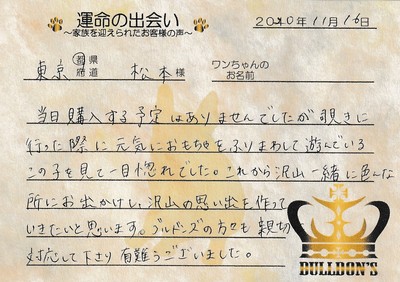 運命の出会い
〜家族を迎えられたお客様の声〜
2020年11月16日
東京 都道府県 松本様
ワンちゃんの
お名前
当日購入する予定はありませんでしたが覗きに
行った際に元気におもちゃをふりまわして遊んでいる
この子を見て一目惚れでした。これから沢山一緒に色んな
所にお出かけし、沢山の思い出を作って
いきたいと思います。ブルドンズの方々も親切
対応して下さり有難うございました。
BULLDON'S